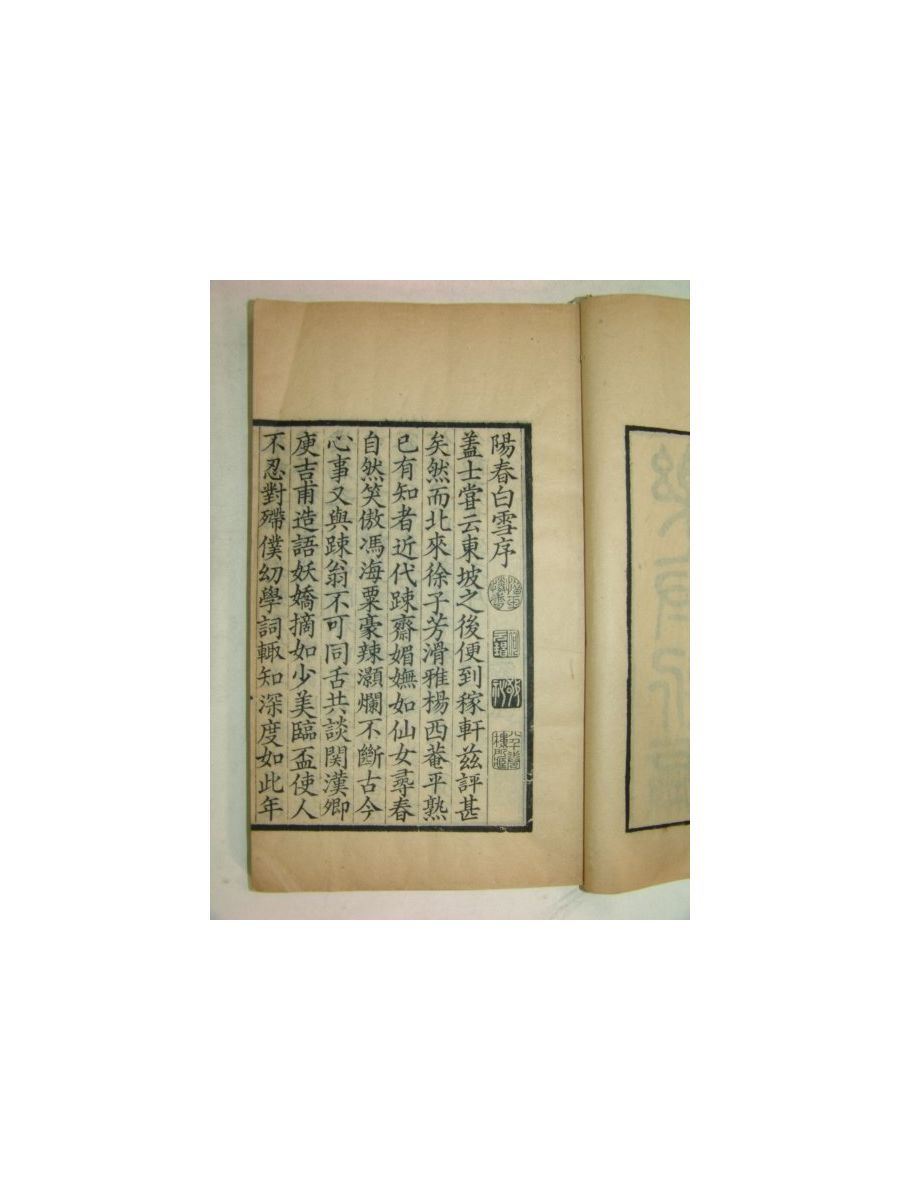 陽春白雪序
蓋士甞云東坡之後便到稼軒茲評甚
矣然而北來徐子芳滑雅楊西菴平熟
已有知者近代踈齋媚嫵如仙女尋春
自然笑傲馮海粟豪辣灝爛不斷古今
心事又與踈翁不可同舌共談関漢卿
庾吉甫造語妖嬌摘如少美臨盃使人
不忍對殢僕幼學詞輒知深度如此年